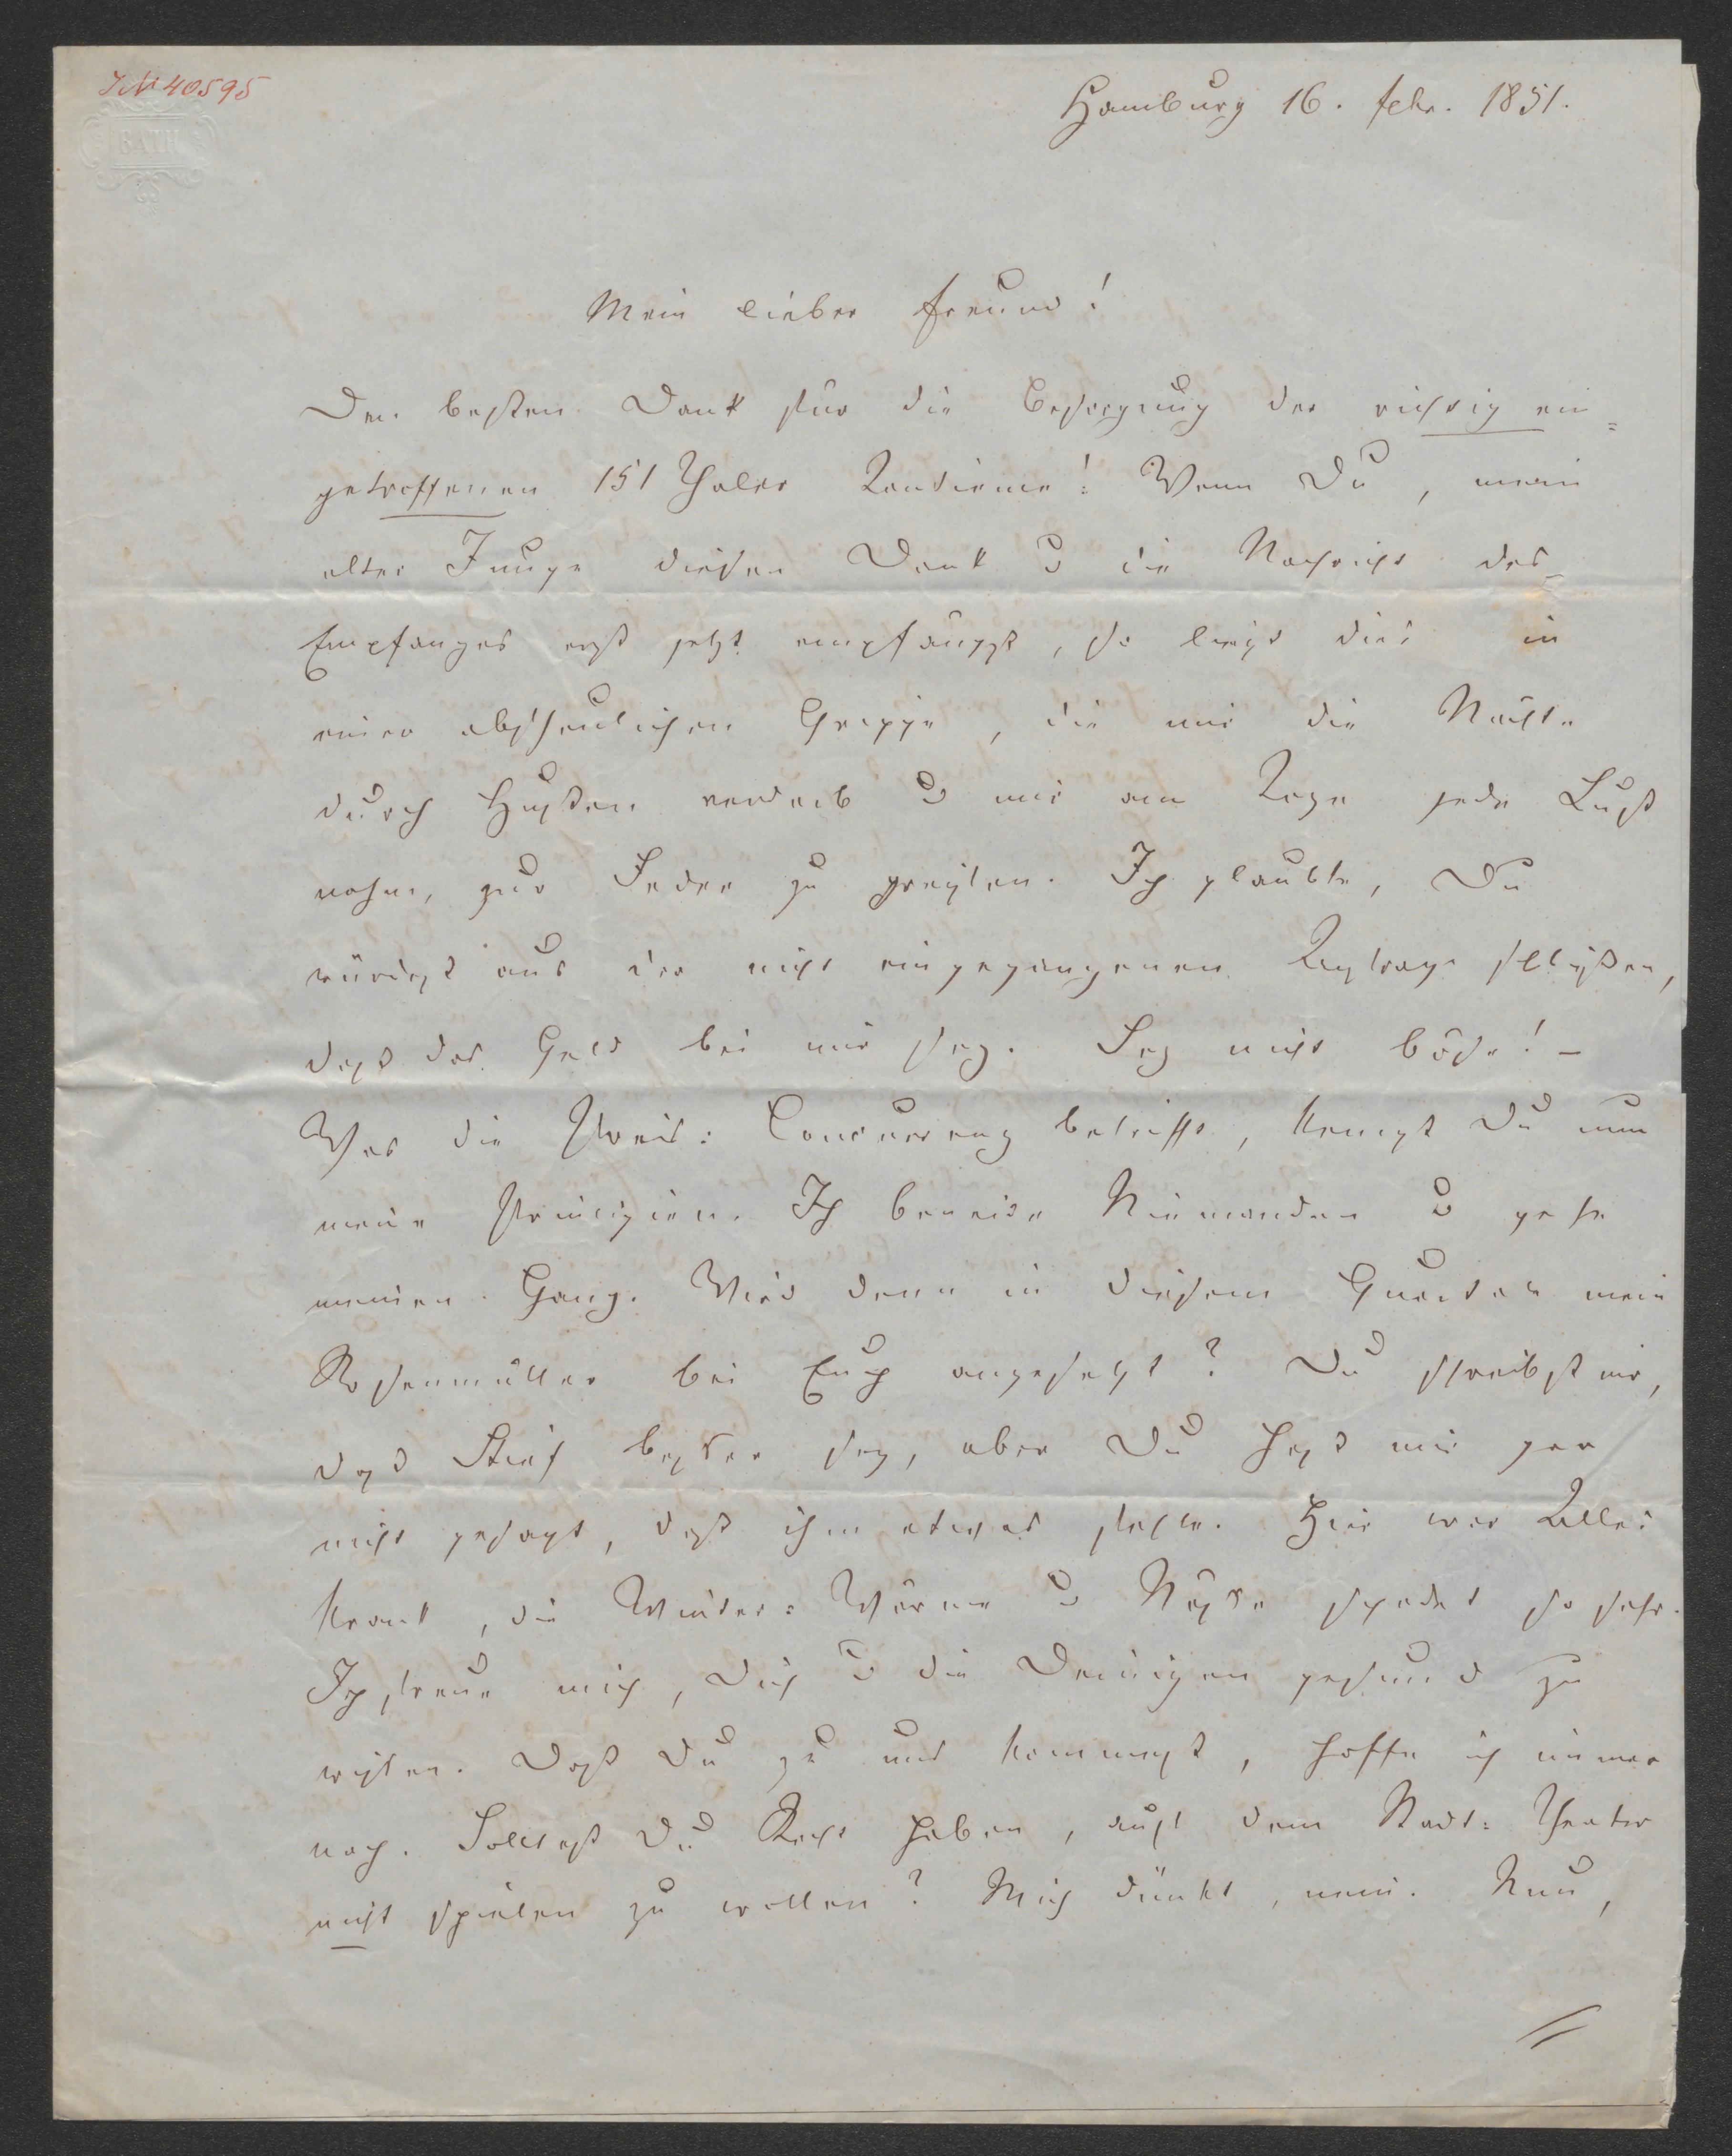 IN 40595
BATH
Hamburg 16. Febr. 1851.
Mein lieber Freund!
Den besten Dank für die Besorgung der richtig ein=
getroffenen 151 Thaler Tantieme! Wenn Du, mein
alter Junge diesen Dank u die Nachricht des
Empfanges erst jetzt empfängst, so liegt dies in
einer abscheulichen Grippe, die mir die Nächte
durch Husten verdarb u mir am Tage jede Lust
nahm, zur Feder zu greifen. Ich glaubte, Du
würdest aus der nicht eingegangenen Anfrage schließen,
daß das Geld bei mir sey. Sey nicht böse! –
Was die Preis=Concurrenz betrifft, kennst Du nun
meine Principien. Ich beneide Niemanden u gehe
meinen Gang. Wird denn in diesem mein
Rosenmüller bei Euch angesetzt? Du schreibst mir,
daß besser sey, aber Du hast mir gar
nicht gesagt, daß ihm etwas fehle. Hier war Alles
krank, die Winter=Wärme u Nässe schadet so sehr.
Ich freue mich, Dich u die Deinigen gesund zu
wissen. Daß Du zu uns kommst, hoffe ich immer
noch. Solltest Du Recht haben, auf dem Stadt=Theater
nicht spielen zu wollen? Mich dünkt, nein. Nun,